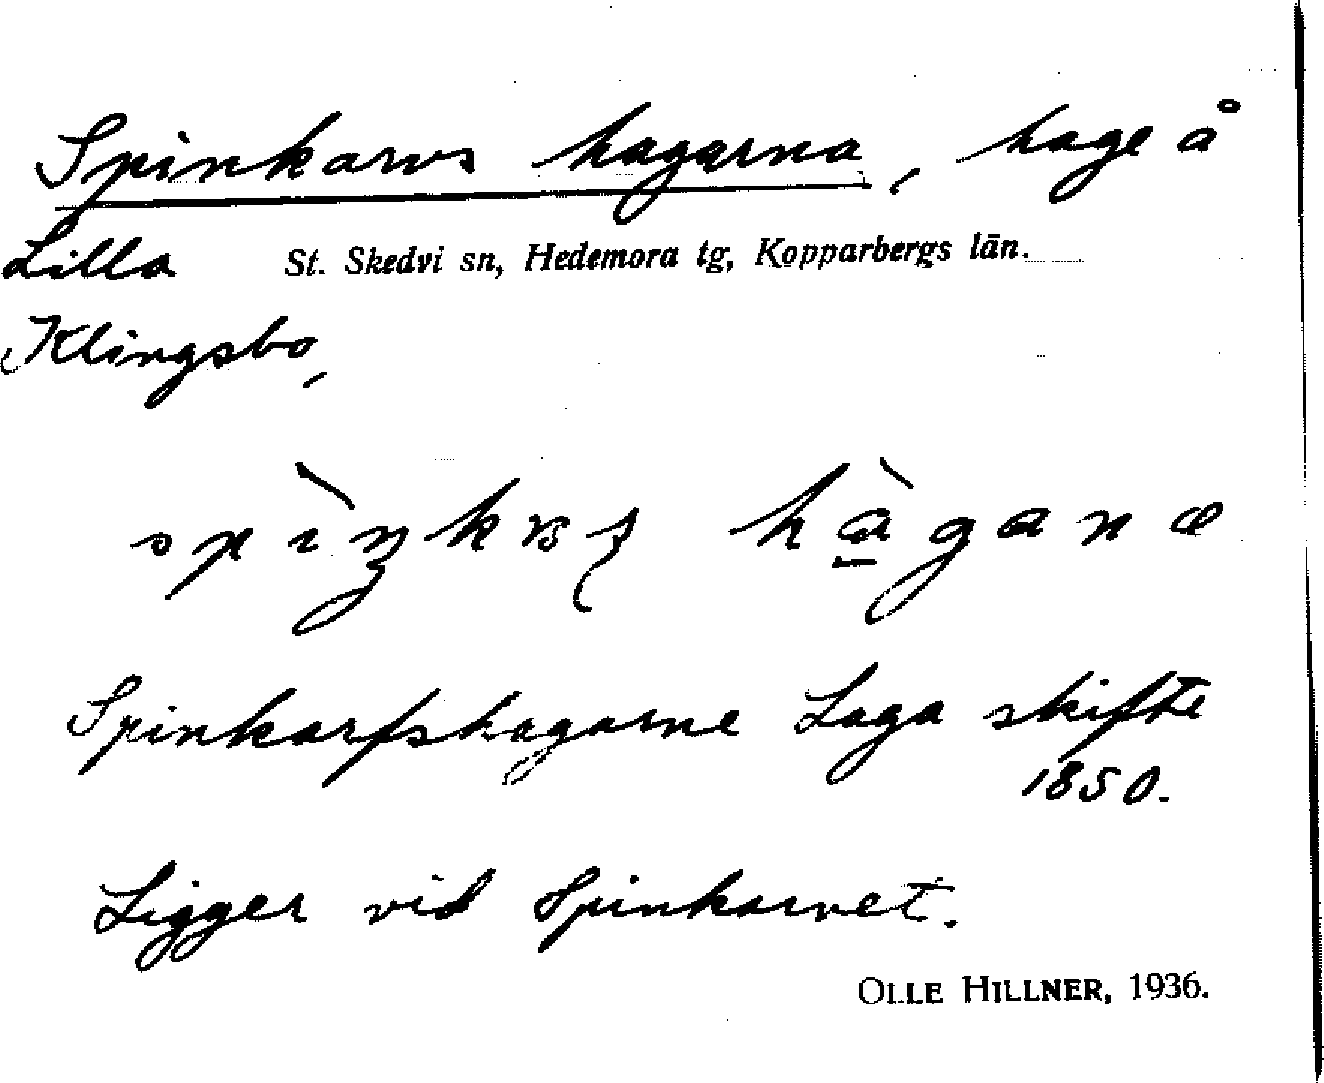 Spinkarvs hagarna, hage å
Lilla St. Skedvi sn, Hedemora tg, Kopparbergs län.
Klingsbo,
Spinkarfshagarne Laga skifte
1850.
Ligger vid Spinkarvet.
OLLE HILLNER, 1936.